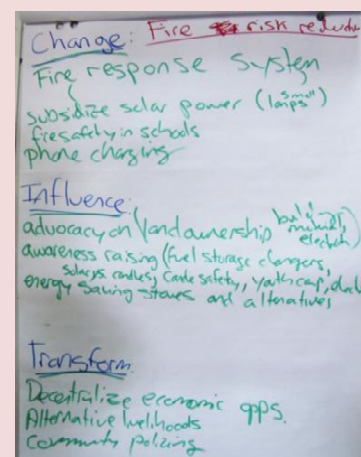 Change: Fire risk reduction
Fire response system
subsidize solar power (small lamps)
fire safety in schools
phone charging
Influence:
advocacy on (land ownership, building materials,
awareness raising (fuel storage dangers,
solar vs. candles, candle safety, youth cap,
energy saving stoves and alternatives
Transform
Decentralize economic opps.
Alternative livelihoods
Community policing